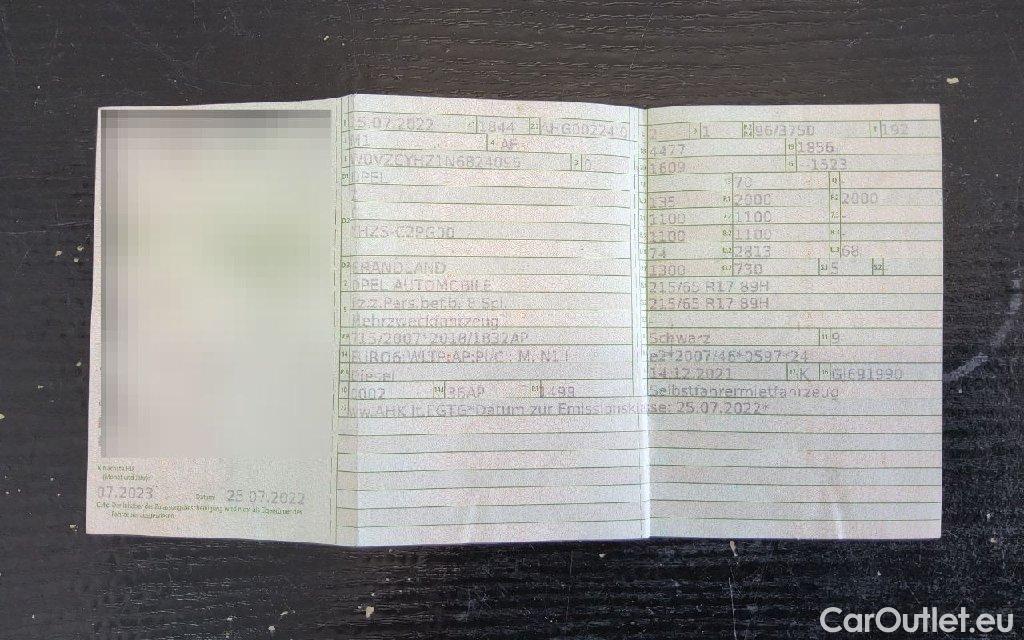 07.2023
Datum
25 07.2022
25-07.2022 1844 AHG00224 0
M1 AF
W0VZCYHZ1N6824096 0
OPEL
Z
YHZS-C2PG00
GRANDLAND
OPEL AUTOMOBILE
Fz.z.Pers.bef.b. 8 Spl.
Mehrzweckfahrzeug
715/2007*2018/1832AP
EURO6;WLTP;AP;PI/CI; M, N1 I
Diesel
0002 36AP 1499
ww.AHK lt.EGTG*Datum zur Emissionsklasse: 25.07.2022*
2 1 96/3750 192
4477 1856
1609 -1523
70 -
135 2000 2000
1100 1100 -
1100 1100 -
74 2813 68
1300 730 5 -
215/65 R17 89H
215/65 R17 89H
Schwarz 9
e2*2007/46*0597*24
14.12.2021 K GI691990
Selbstfahrermietfahrzeug
CarOutlet.eu